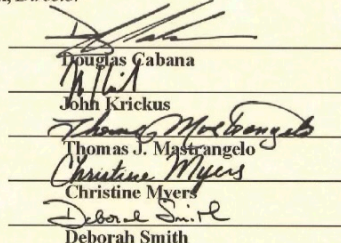 Douglas Cabana
John Krickus
Thomas Mastrangelo
Thomas J. Mastrangelo
Christine Myers
Christine Myers
Deborah Smith
Deborah Smith